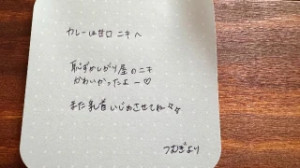 カレーは甘口 ニキへ
恥ずかしがり屋のニキ
かわいかったよー♡
また乳首いじめさせてね♡♡
つむぎより